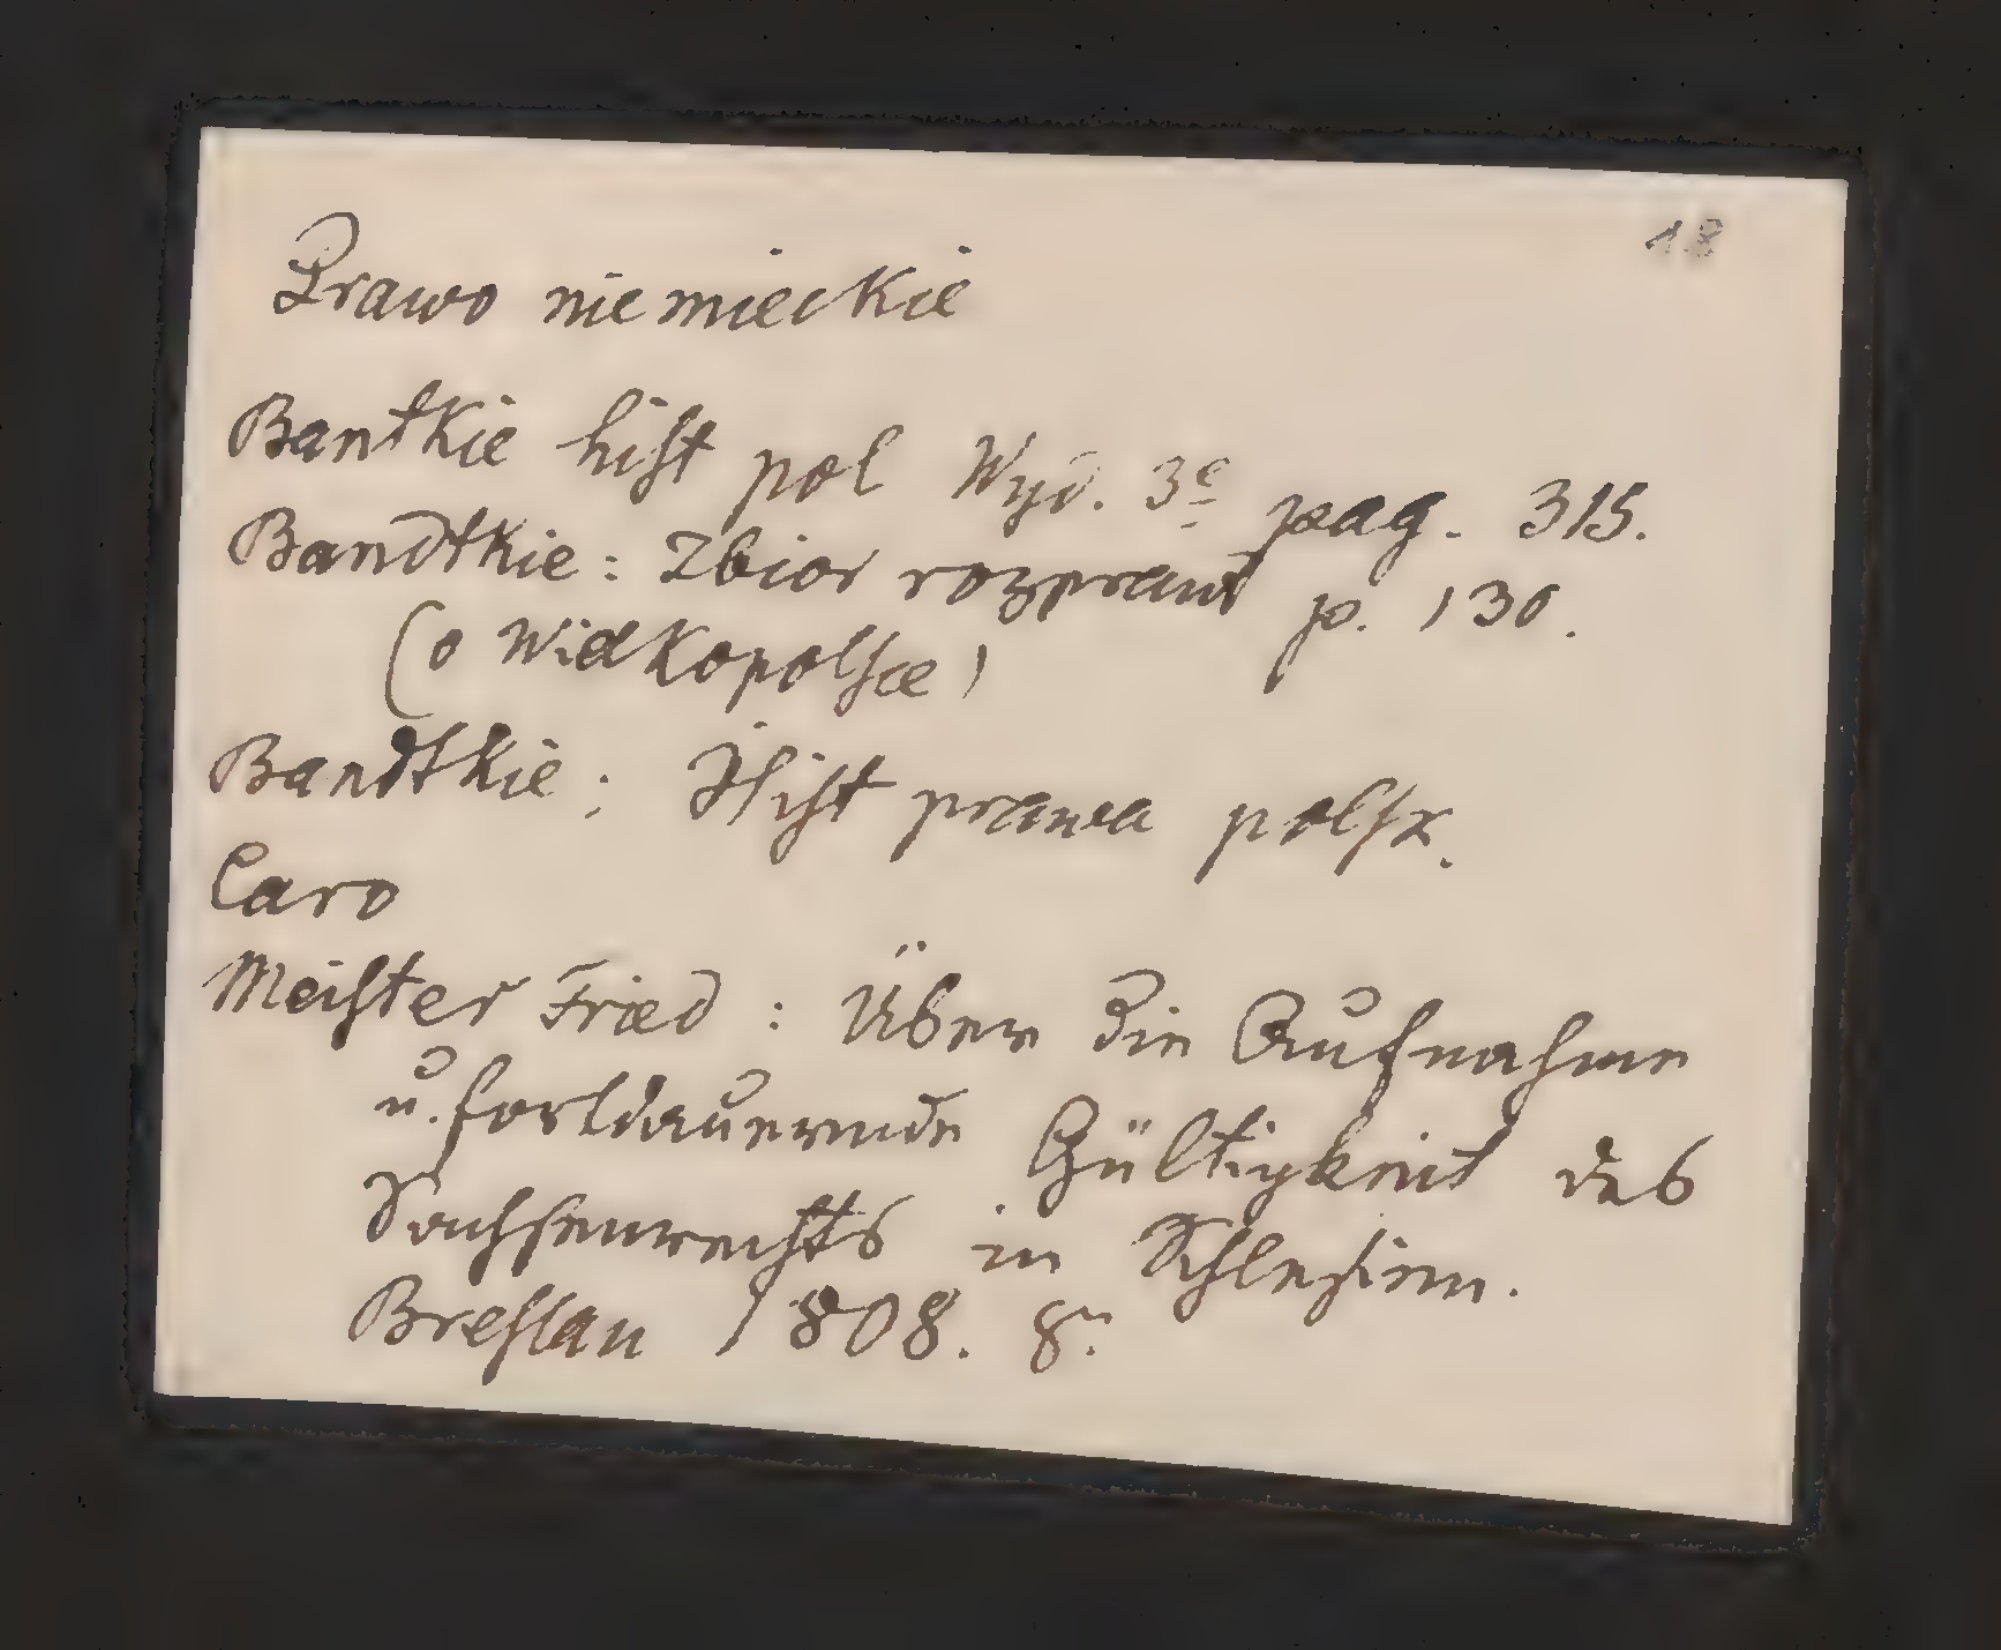 18
Prawo niemieckie
Bantkie hist pol Wyd. 3e pag. 315.
Bandtkie: Zbior rozpraw p. 130.
(o Wielkopolsce)
Bandtkie; Hist prawa polsk.
Caro
Meister Fried: Über die Aufnahme
u. fortdauernde Gültigkeit des
Sachsenrechts in Schlesien.
Breslau 1808. 8º.